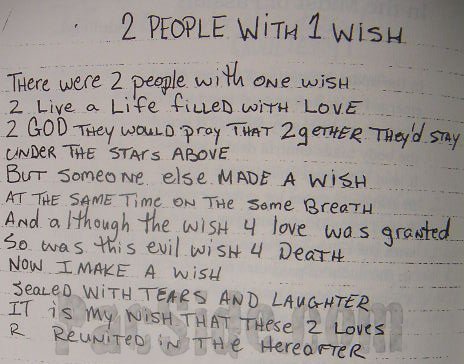 2 PEOPLE WITH 1 WISH
THERE WERE 2 people with ONE WISH
2 Live a Life filled WITH LOVE
2 GOD THEY WOULD pray THAT 2gETHER THEy'd STAY
UNDER THE STARS ABOVE
BUT Someone else MADE A WISH
AT THE SAME Time ON THE Same BreATH
And although the WISH 4 love was granted
So was this evil WISH 4 DeATH
NOW I MAKE A WISH
SeALED WITH TEARS AND LAUGHTER
IT is my WISH THAT THese 2 Loves
R REUNITED in THe HereAFTER